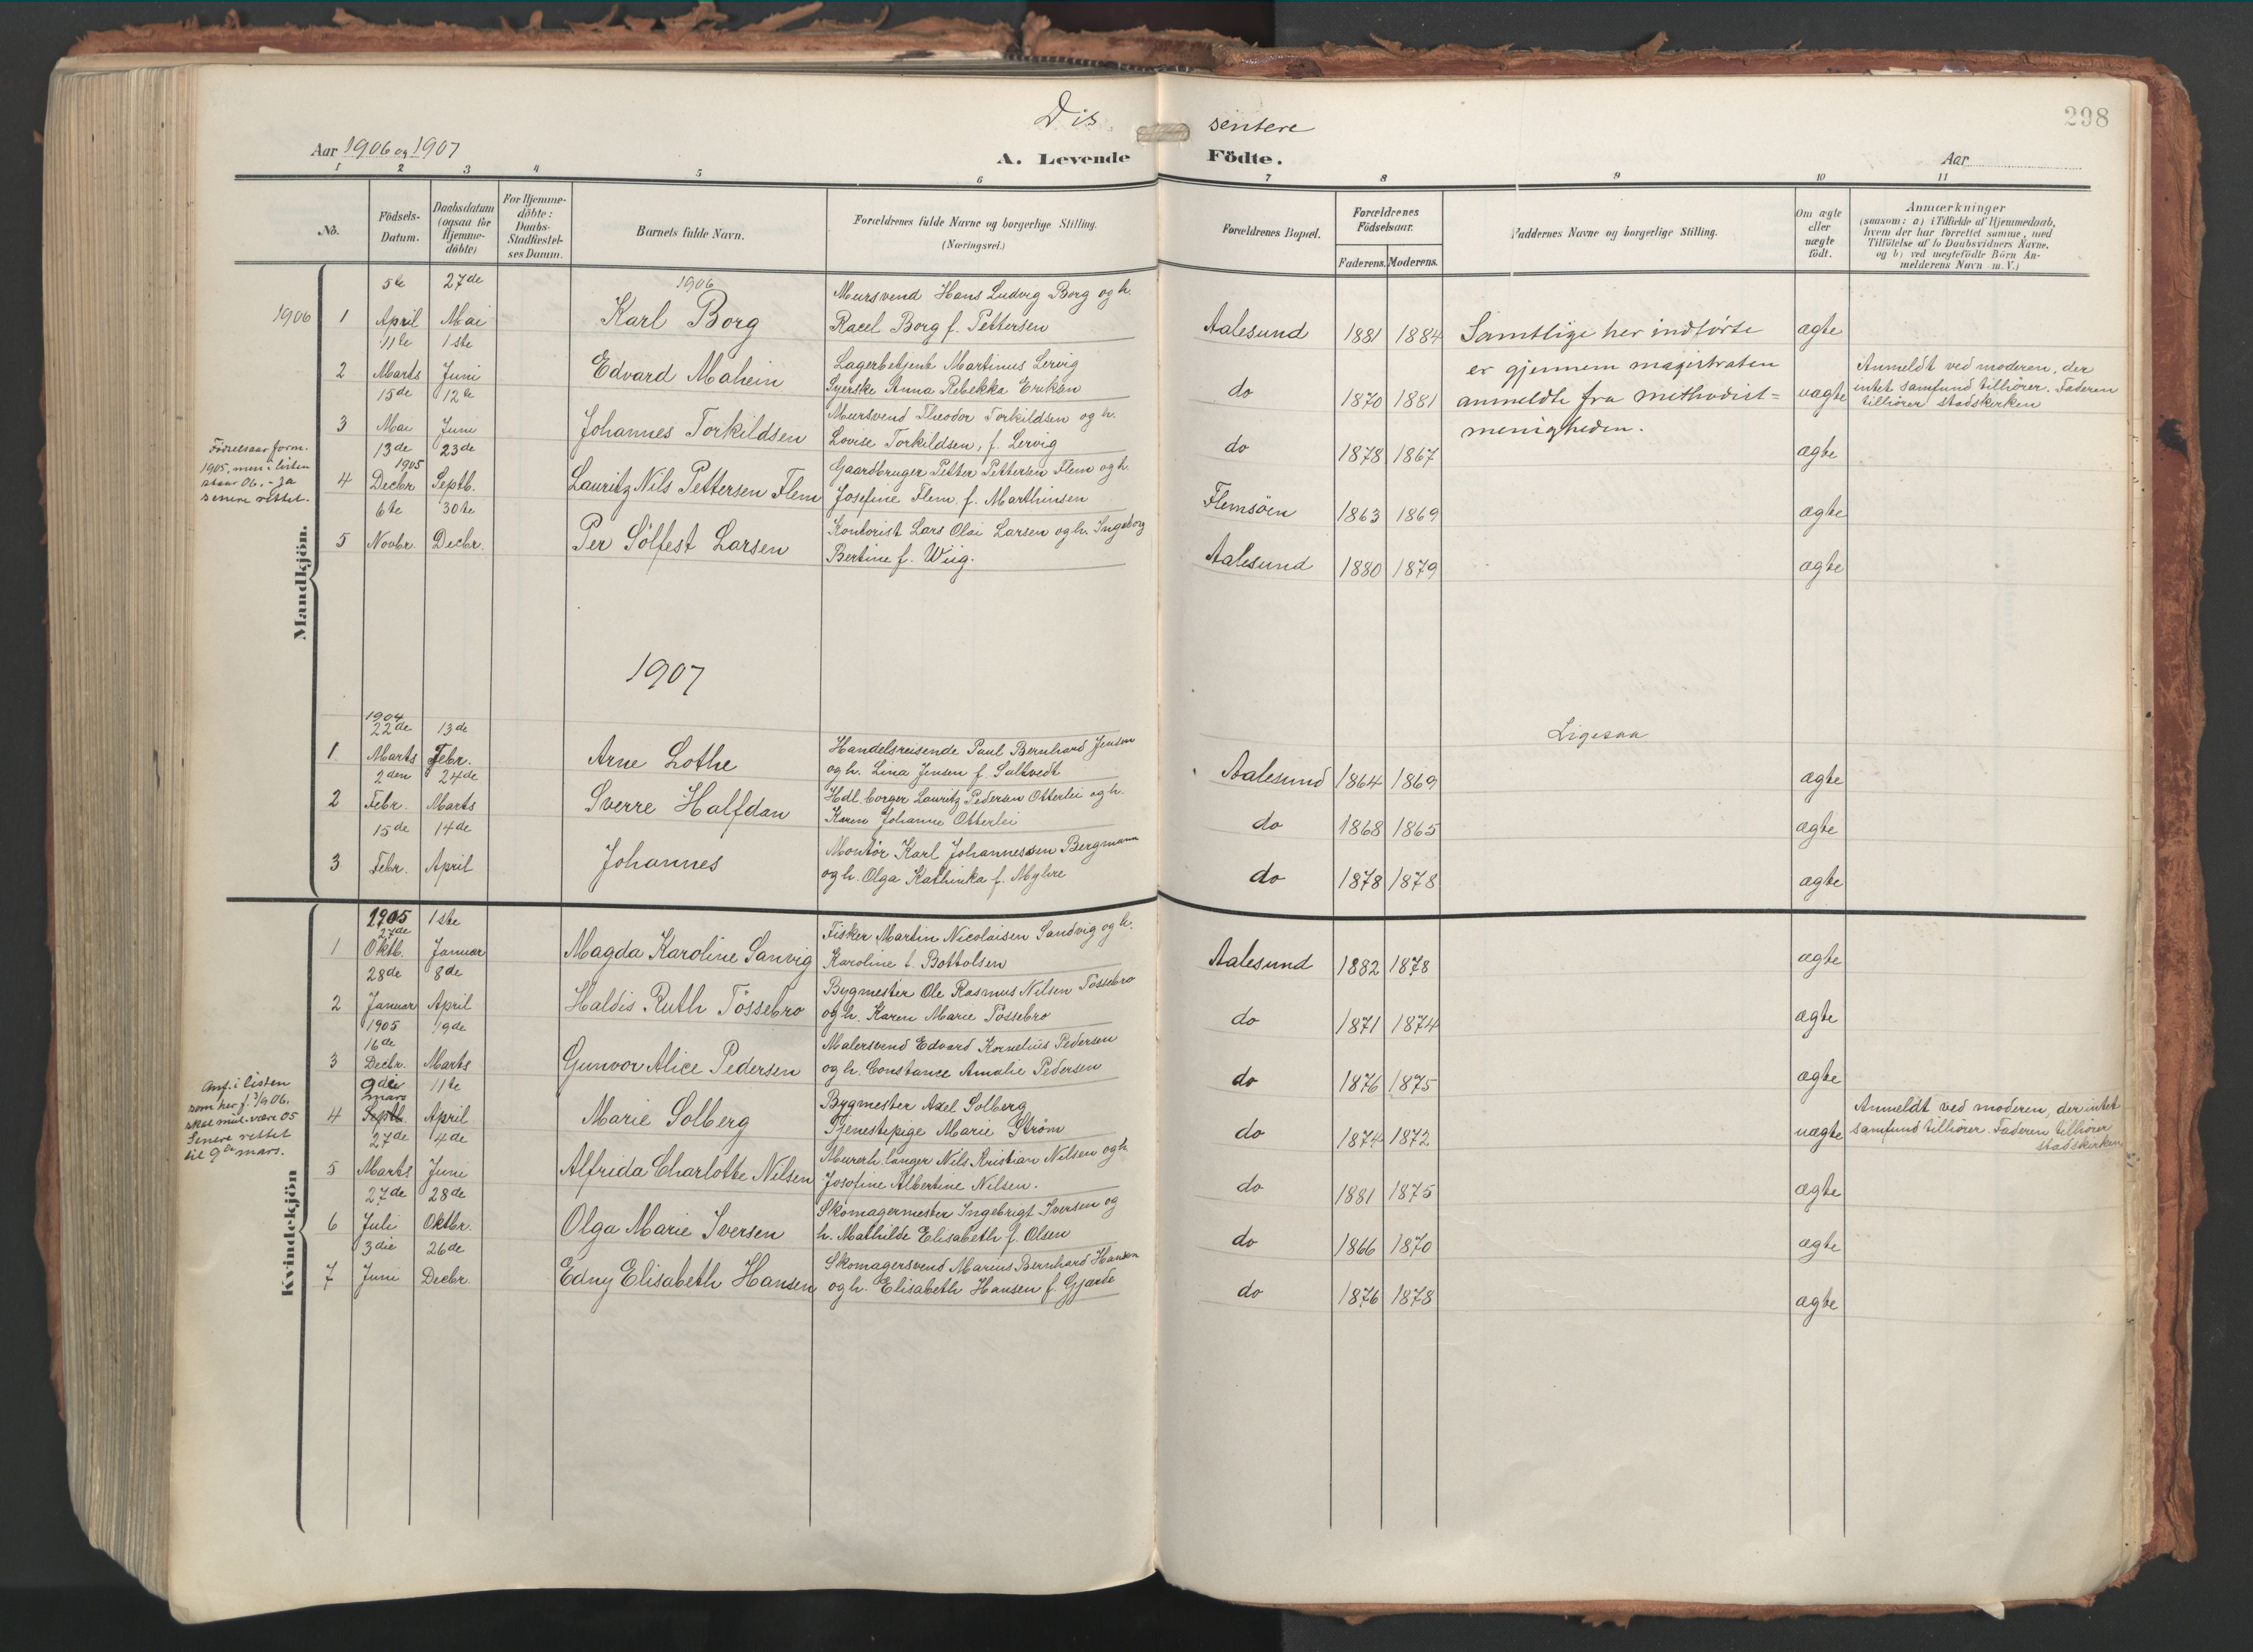 Dissentere
298
Aar 1906 og 1907
A. Levende Födte.
Aar
1 2 3 4 5 6 7 8 9 10 11
No.
Födsels-Datum.
Daabsdatum (ogsaa for Hjemme-döbte)
For Hjemme-döbte: Daabs-Stadfæstel-ses Datum.
Barnets fulde Navn.
Forældrenes fulde Navne og borgerlige Stilling. (Næringsvei.)
Forældrenes Bopæl.
Forældrenes Födselsaar.
Faderens. Moderens.
Faddernes Navne og borgerlige Stilling.
Om ægte eller uægte födt.
Anmærkninger
(saasom: a) i Tilfælde af Hjemmedaab, hvem der har forrettet samme, med Tilföielse af to Daabsvidners Navne, og b) ved uægtefödte Börn An-melderens Navn m. V.)
Mandkjön.
1906
1906
1 5te April 27de Mai Karl Borg Mursvend Hans Ludvig Borg og h. Racel Borg f. Pettersen Aalesund 1881 1884 ægte
Samtlige her indførte
er gjennem magistraten
anmeldte fra methodist=
menigheden.
2 11te Marts 1ste Juni Edvard Mahein Lagerbetjent Martinus Lervig Syerske Anna Rebekka Eriksen do 1870 1881 uægte
Anmeldt ved moderen, der
intet samfund tilhører. Faderen
tilhører statskirken
3 15de Mai 12te Juni Johannes Torkildsen Mursvend Theodor Torkildsen og h. Lovise Torkildsen, f. Lervig do 1878 1867 ægte
Fødselsaar form.
1905, men i listen
staar 06. - ja
senere rettet.
4 13de 1905 Decbr 23de Septb. Lauritz Nils Pettersen Flem Gaardbruger Petter Pettersen Flem og h. Josefine Flem f. Marthinsen Flemsöen 1863 1869 ægte
5 6te Novbr. 30te Decbr. Per Sölfest Larsen Kontorist Lars Olai Larsen og h. Ingeborg Bertine f. Wiig. Aalesund 1880 1879 ægte
1907
1 1904 22de Marts 13de Febr. Arne Lothe Handelsreisende Paul Bernhard Jensen og h. Lina Jensen f. Saltvedt Aalesund 1864 1869 Ligesaa ægte
2 2den Febr. 24de Marts Sverre Halfdan Hdl. borger Lauritz Pedersen Otterlei og h. Karen Johanne Otterlei do 1868 1865 ægte
3 15de Febr. 14de April Johannes Montör Karl Johannessen Bergmann og h. Olga Kathinka f. Myhre do 1878 1878 ægte
Kvindekjön
1 1905 27de Oktb. 1ste Januar Magda Karoline Sanvig Fisker Martin Nicolaisen Sandvig og h. Karoline f. Bottolsen Aalesund 1882 1878 ægte
2 28de Januar 8de April Haldis Ruth Tössebro Bygmester Ole Rasmus Nilsen Tössebro og h. Karen Marie Tössebro do 1871 1874 ægte
3 1905 16de Decbr. 19de Marts Gunvor Alice Pedersen Malersvend Edvard Kornelius Pedersen og h. Constance Amalie Pedersen do 1876 1875 ægte
Anf. i listen
som her f. 3/9 06.
skal mul. være 05
Senere rettet
til 9de mars.
4 9de mars Septb. 11te April Marie Solberg Bygmester Axel Solberg Tjenestepige Marie Ström do 1874 1872 uægte
Anmeldt ved moderen, der intet
samfund tilhører. Faderen tilhører
statskirken
5 27de Marts 4de Juni Alfrida Charlotte Nilsen Murerh.langer Nils Kristian Nilsen og h. Josofine Albertine Nilsen. do 1881 1875 ægte
6 27de Juli 28de Oktbr. Olga Marie Iversen Skomagermester Ingebrigt Iversen og h. Mathilde Elisabeth f. Olsen do 1866 1870 ægte
7 3die Juni 26de Decbr. Edny Elisabeth Hansen Skomagersvend Marius Bernhard Hansen og h. Elisabeth Hansen f. Gjærde do 1876 1878 ægte